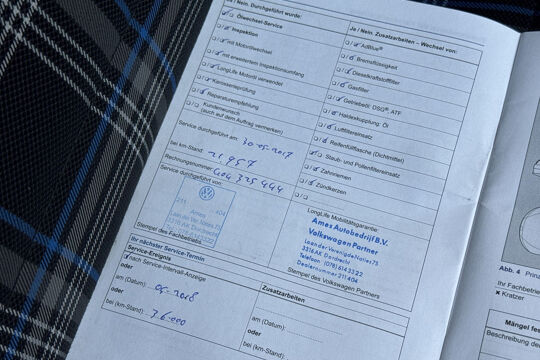 Ja / Nein. Durchgeführt wurde:
Ölwechsel-Service
Inspektion
mit Motorölwechsel
mit erweitertem Inspektionsumfang
LongLife Motoröl verwendet
Karosserieprüfung
Reparaturempfehlung
Kundenwunsch
(auch auf dem Auftrag vermerken)
Service durchgeführt am: 30-05-2017
bei km-Stand: 21957
Rechnungsnummer: 404 325 444
Service durchgeführt von:
211 404
Ames
3316 AK Dordrecht
Stempel des Fachbetriebs
Ihr nächster Service-Termin
Service-Ereignis
nach Service-Intervall-Anzeige
oder
am (Datum): 05-2018
oder
bei (km-Stand): 36.000
Ja / Nein. Zusatzarbeiten – Wechsel von:
AdBlue®
Bremsflüssigkeit
Dieselkraftstofffilter
Gasfilter
Getriebeöl: DSG®, ATF
Haldexkupplung: Öl
Luftfiltereinsatz
Reifenfüllflasche (Dichtmittel)
Staub- und Pollenfiltereinsatz
Zahnriemen
Zündkerzen
LongLife Mobilitätsgarantie:
Ames Autobedrijf B.V.
Volkswagen Partner
Laan der Verenigde Naties 75
3316 AK Dordrecht
Telefoon (078) 6143322
Dealernummer 211 404
Stempel des Volkswagen Partners
Zusatzarbeiten
am (Datum):
oder
bei (km-Stand):
Abb. 4
Ihr Fachbetrie
× Kratzer
Mängel fes
Beschreibung der